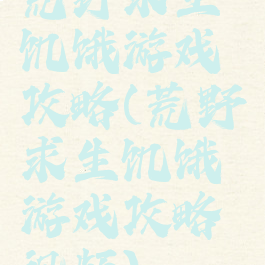 荒野求生
饥饿游戏
攻略(荒野
求生饥饿
游戏攻略
视频)